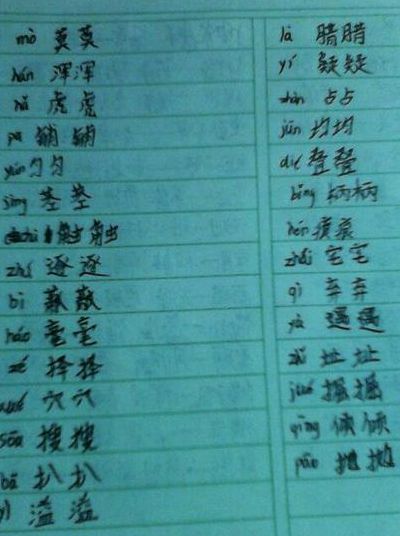 mò 莫莫
hún 浑浑
hǔ 虎虎
铺铺
yún 匀匀
jīng 茎茎
触触
zhú 逐逐
bì 蔽蔽
háo 毫毫
zé 择择
xué 穴穴
sōu 搜搜
bā 扒扒
yì 溢溢
là 腊腊
yí 疑疑
占占
jūn 均均
dié 叠叠
bǐng 柄柄
hén 痕痕
zhái 宅宅
qì 弃弃
yù 遇遇
zhǐ 址址
jué 掘掘
qīng 倾倾
pāo 抛抛